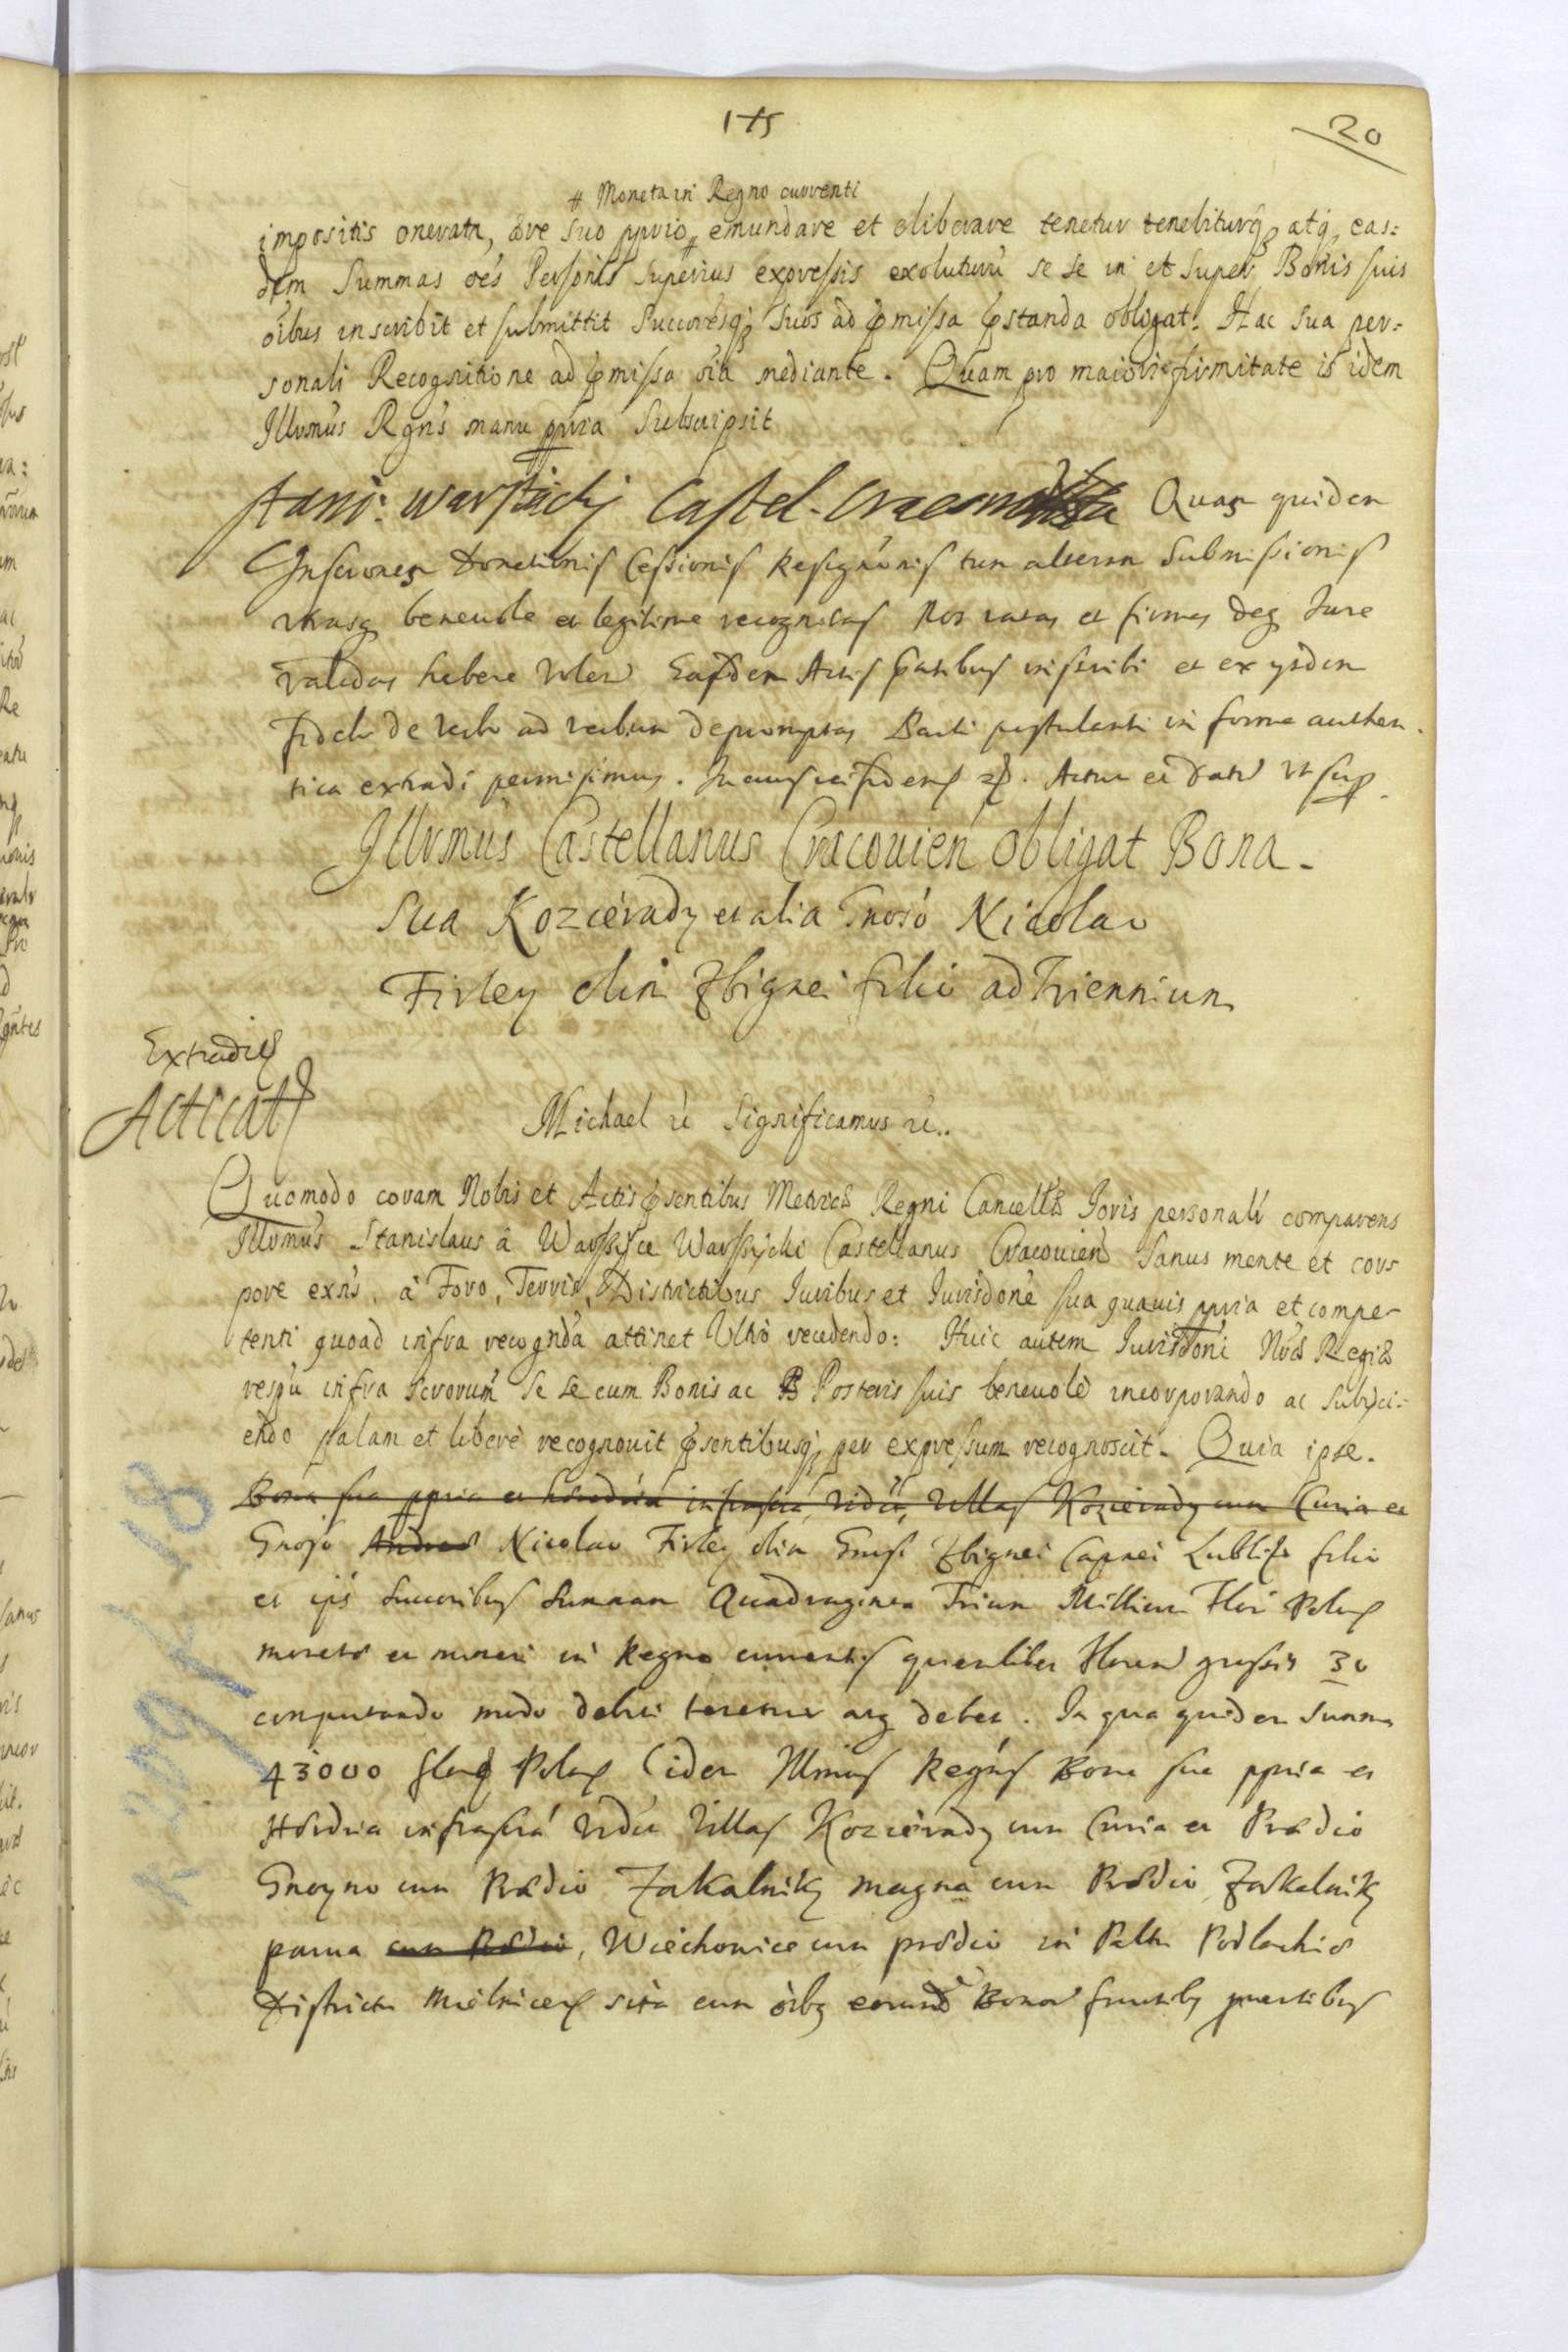 175
20
# Moneta in Regno currenti
impositis onerata, aere suo pprio # emundare et eliberare tenetur tenebiturq, atq, eas=
dem Summas oes Personis superius expressis exoluturu se se in et super Bonis suis
oibus inscribit et submittit Succoresq; suos ad pmissa pstanda obligat. Hac sua per=
sonali Recognitione ad pmissa oia mediante. Quam pro maiori firmitate is idem
Illvmus Rgns manu ppria subscripsit
Stani: Warszicki Castel. Quas quidem
Inscriones Donationis Cessionis Resignonis tum alteram Submissionis
vtrasq beneuole et legitime recognitas Nos ratas et firmas deq Jure
validas habere volen Easdem Actis pntibus inscribi et ex ysdem
fideli de verbo ad verbum depromptas Parti postulanti in forma authen
tica extradi permisimus. In cuius rei fidem . Actum et dat vt sup
Illvmus Castellanus Cracouien obligat Bona
Sua Kozcierady et alia Gnoso Nicolao
Firley olim Zbignei filio ad Triennium
Extradit
Acticat
Michael Significamus
Quomodo coram Nobis et Actis psentibus Metrices Regni Cancellae Iovis personalr comparens
Illvmus Stanislaus à Warszyce Warszycki Castellanus Cracouien Sanus mente et cor
pore exns, à Foro, Terris, Districtibus Iuribus et Iurisdone sua quauis ppria et compe-
tenti quoad infra recognda attinet Vltrò recedendo: Huic autem Iurisdoni Nrae Regiae
respu infra scrorum se se cum Bonis ac Posteris suis beneuolè incorporando ac subyci=
endo palam et liberè recognouit psentibusq; per expressum recognoscit. Quia ipse.
Bona sua ppria et haereditria infrascra, vidt, Villas Kozcierady cum Curia et
Gnoso Nicolao Firley olim Gnosi Zbignei Capnei Lublin filio
et ips succoribus Summam Quadraginta Trium Millium Flor Polon
moneta et numeri in Regno currentis quemlibet Floren grossis 30
computando modo debiti tenetur atq debet. In qua quidem summa
43000 flor Polon idem Illmus Regns Bona sua ppria et
Haeredria infrascra vidt Villas Kozcierady cum Curia et Praedio
Gnoyno cum Praedio Zakalniky magna cum Praedio Zakalniky
parua cum Praedio, Wiechowice cum praedio in Paltu Podlachiae
Districtu Mielnicen sita cum oibq Bonor fructibq